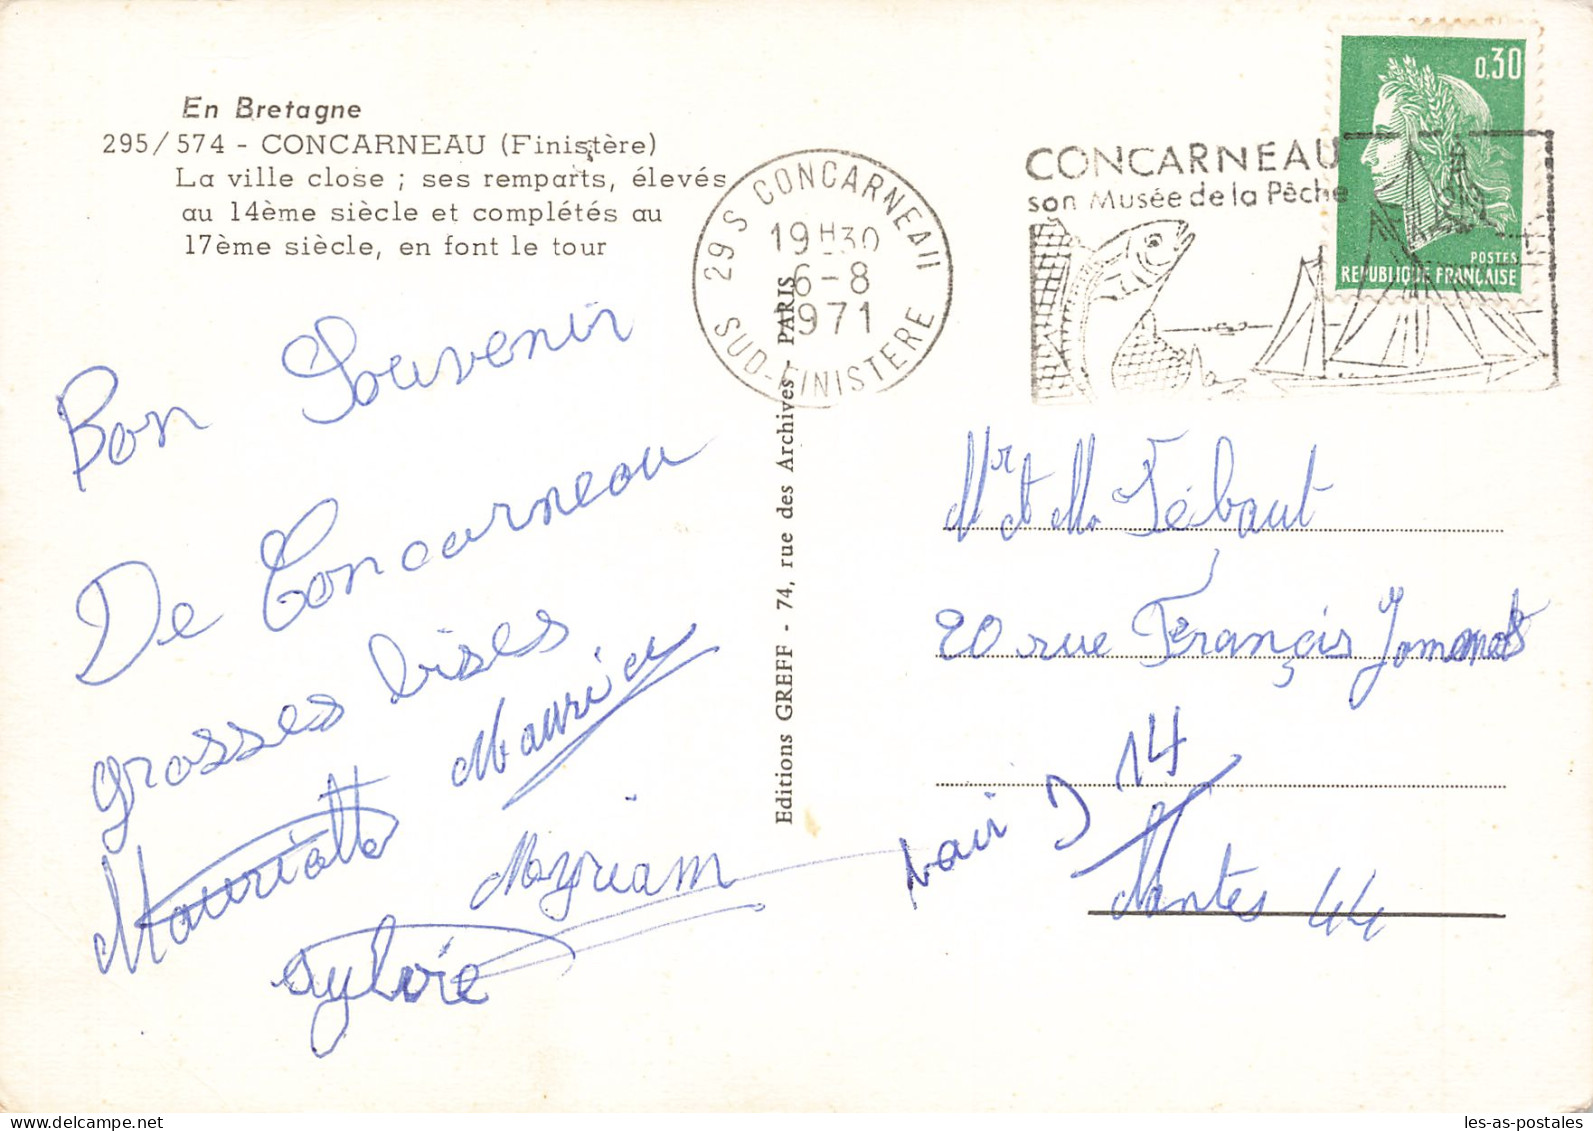 En Bretagne
295/574 - CONCARNEAU (Finistère)
La ville close ; ses remparts, élevés
au 14ème siècle et complétés au
17ème siècle, en font le tour
Bon Souvenir
De Concarneau
grosses bises
Mauricette Maurice
Myriam
Sylvie
Editions GREFF - 74, rue des Archives - PARIS
29 S CONCARNEAU
19H30
6-8
1971
SUD-FINISTERE
CONCARNEAU
son Musée de la Pêche
0,30
POSTES
REPUBLIQUE FRANÇAISE
Mr et Me Tébaut
20 rue François
14
Nantes 44
les-as-postales